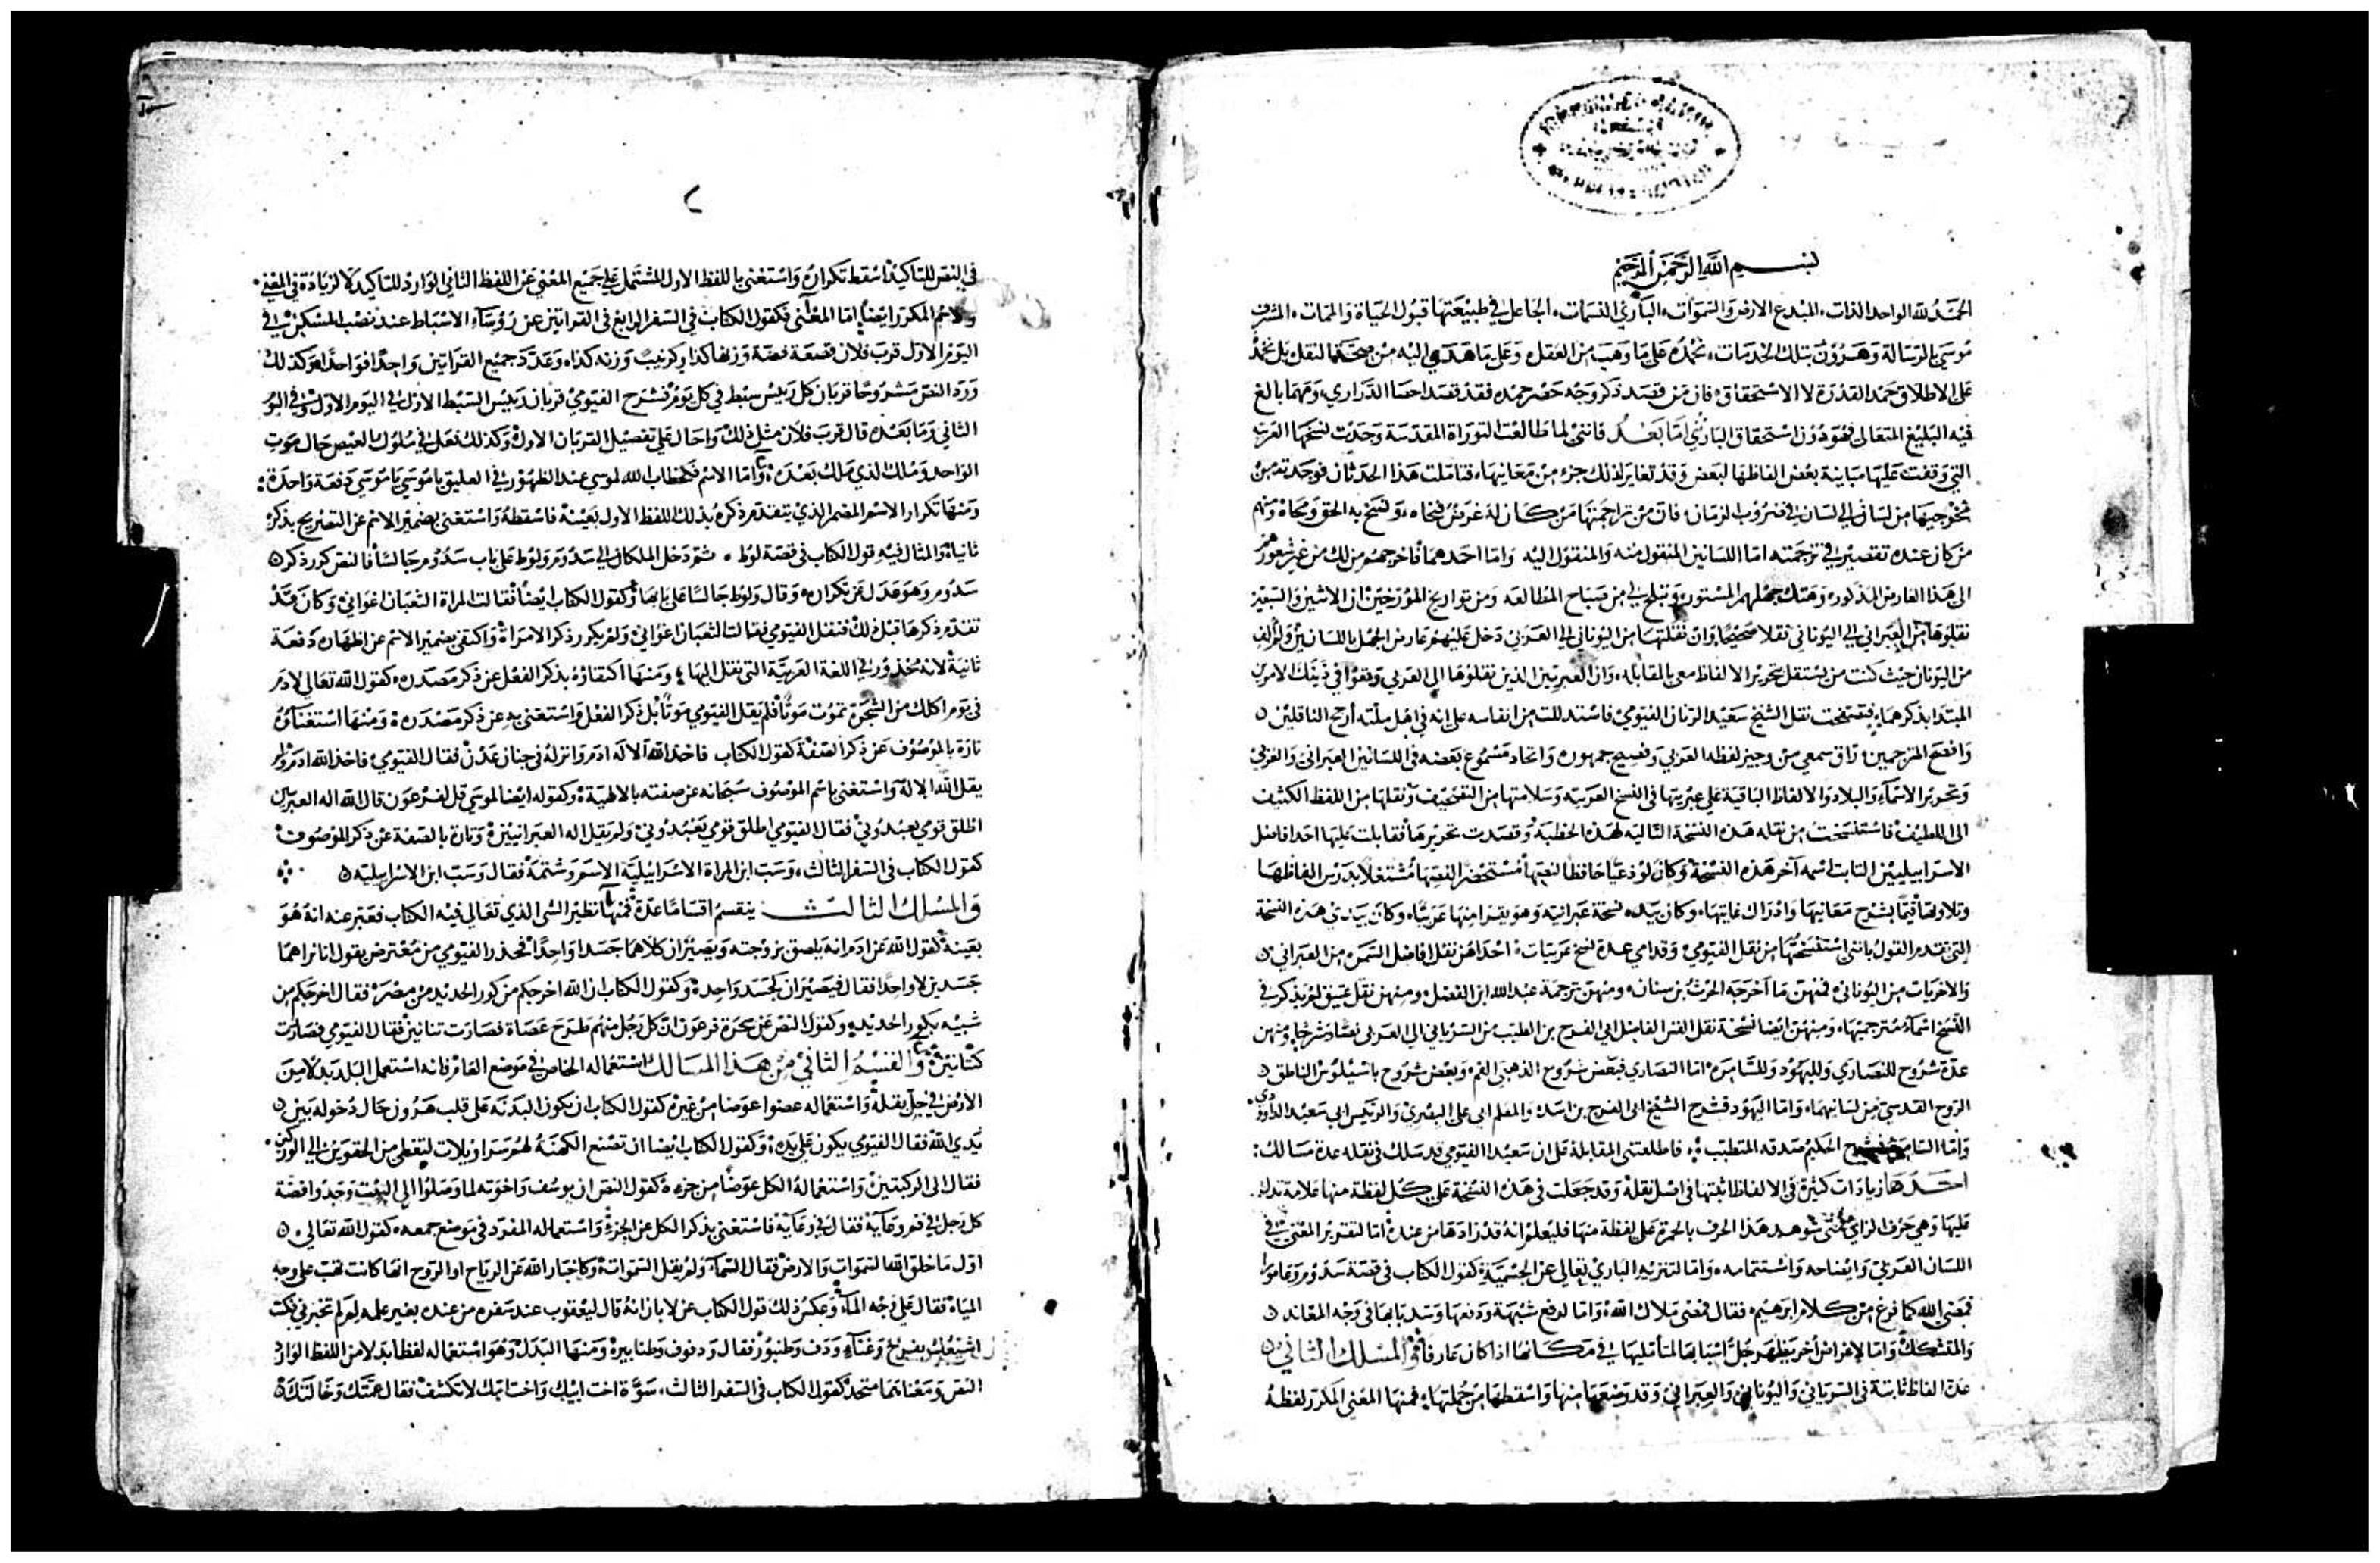 بسم الله الرحمن الرحيم
الحمد لله الواحد الذات، المبدع الارض والسموات، الباري النسمات، الجاعل في طبيعتها قبول الحياة والممات، المشرف
موسى بالرسالة وهرون بتلك الخدمات، نحمده على ما وهب من العقل، وعلى ما هدى اليه من صحة النقل بل نحمده
على الاطلاق حمد القدرة لا الاستحقاق، فان من قصد ذكر وجه حصر حمده فقد قصد احصا الدراري، ومهما بالغ
فيه البليغ المتعالي فهو دون استحقاق الباري اما بعد فانني لما طالعت التوراة المقدسة وجدت نسخها العربية
التي وقفت عليها مباينة بعض الفاظها لبعض وقد تغاير لذلك جزء من معانيها، فتاملت هذا الحدثان فوجدته من
خروجها من لسان الى لسان في ضروب الزمان، فان من تراجمتها من كان له غرض فنحاه، ونسخ به الحق ومحاه ومنهم
من كان عنده تقصير في ترجمته اما اللسانين المنقول منه والمنقول اليه واما احدهما فاخرجهم ذلك من غير شعور منهم
الى هذا العارض المذكور، وهتك جهلهم المستور، وتبلج لي من صباح المطالعة ومن تواريخ المؤرخين ان الاثنين والسبعين
نقلوها من العبراني الى اليوناني نقلا صحيحا وان نقلتها من اليوناني الى العربي دخل عليهم عارض الجهل باللسانين ولم الف
من اليونان حيث كنت من يستقل بتحرير الالفاظ معي بالمقابلة، وان العبريين الذين نقلوها الى العربي وقعوا في ذينك الامرين
المبتدا بذكرهما، فتصفحت نقل الشيخ سعيد الربان الفيومي فاستدللت من انفاسه على انه في اهل ملته ارجح الناقلين
وافصح المترجمين، راق سمعي من وجيز لفظه العربي وفسيح جمهوره واتحاد مسموع بعضه في اللسانين العبراني والعربي
وتحرير الاسماء والبلاد والالفاظ الباقية على عبريتها في النسخ العربية وسلامتها من التصحيف ونقلها من اللفظ الكثيف
الى اللطيف فاستنسخت من نقله هذه النسخة التالية لهذه الخطبة وقصدت تحريرها فقابلت عليها احد افاضل
الاسراييليين الثابت اسمه آخر هذه النسخة وكان لوذعيا حافظا لنصها مستحضرا لقصصها مشتغلا بدرس الفاظها
وتلاوتها قيما بشرح معانيها وادراك غايتها، وكان بيده نسخة عبرانية وهو يقرا منها عربيا، وكان بيدي هذه النسخة
التي تقدم القول بانني استنسختها من نقل الفيومي، وقدامي عدة نسخ عربيات، احداهن نقل افاضل الشمس من العبراني
والاخريات من اليوناني، فمنهن ما اخرجه الحرث بن سنان، ومنهن ترجمة عبد الله ابن الفضل، ومنهن نقل عتيق لم يذكر في
النسخ اسماء مترجميها، ومنهن ايضا نسخة نقل القس الفاضل ابي الفرج بن الطيب من السرياني الى العربي نصا وشرحا، ومنهن
عدة شروح للنصارى ولليهود وللسامرة، اما النصارى فبعض شروح الذهبي الفم، وبعض شروح باسيليوس الناطق
الروح القدسي من لسانيهما، واما اليهود فشرح الشيخ ابي الفرج بن اسد، والمعلم ابي علي البصري، والرئيس ابي سعيد الداودي
واما السامرة فشرح الحكيم صدقه المتطبب، فاطلعتني المقابلة على ان سعيدا الفيومي قد سلك في نقله عدة مسالك:
احدها زيادات كثيرة في الالفاظ اثبتها في اصل نقله وقد جعلت في هذه النسخة على كل لفظة منها علامة تدل
عليها وهي حرف الزاي فمتى شوهد هذا الحرف بالحمرة على لفظة منها فليعلم انه قد زادها من عنده اما لتقرير المعنى في
اللسان العربي وايضاحه واستتمامه، واما لتنزيه الباري تعالى عن الجسمية، كقول الكتاب في قصة سدوم وعامورا
فمضى الله كما فرغ من كلام ابرهيم، فقال فمضى ملاك الله، واما لدفع شبهة ودفعها وسد بابها في وجه المعاند
والمتشكك واما لاغراض أخر يظهر جل اسبابها لمتأمليها في مكانها اذا كان عارفا، والمسلك الثاني
عدة الفاظ ثابتة في السرياني واليوناني والعبراني وقد وضعها منها واسقطها من جملتها، فمنها المعنى المكرر لفظه
في النص للتاكيد اسقط تكراره واستغنى باللفظ الاول المشتمل على جميع المعنى عن اللفظ الثاني الوارد للتاكيد لا لزيادة في المعنى
والاسم المكرر ايضا، اما المعنى فكقول الكتاب في السفر الرابع في القرابين عن رؤساء الاسباط عند نصب المسكن في
اليوم الاول قرب فلان قصعة فضة وزنها كذا وكرنيب وزنه كذا، وعدد جميع القرابين واحدا فواحدا وكذلك
ورد النص مشروحا قربان كل رئيس سبط في كل يوم فشرح الفيومي قربان رئيس السبط الاول في اليوم الاول وفي اليوم
الثاني وما بعده قال قرب فلان مثل ذلك واحال على تفصيل القربان الاول، وكذلك فعل في ملوك العيص حال موت
الواحد وملك الذي ملك بعده، واما الاسم فكخطاب الله لموسى عند الظهور في العليق يا موسى يا موسى دفعة واحدة:
ومنها تكرار الاسم المضمر الذي يتقدم ذكره بذلك اللفظ الاول بعينه فاسقطه واستغنى بضمير الاسم عن التصريح بذكره
ثانيا والمثال فيه قول الكتاب في قصة لوط، ثم دخل الملكان الى سدوم ولوط على باب سدوم جالسا فالنص كرر ذكر
سدوم وهو عدل عن تكراره وقال ولوط جالسا على بابها، وكقول الكتاب ايضا فقالت المراة الثعبان اغواني وكان قد
تقدم ذكرها قبل ذلك فنقل الفيومي فقالت الثعبان اغواني ولم يكرر ذكر الامرأة واكتفى بضمير الاسم عن اظهاره دفعة
ثانية لانه محذور في اللغة العربية التي نقل اليها، ومنها اكتفاؤه بذكر الفعل عن ذكر مصدره، كقول الله تعالى لادم
في يوم اكلك من الشجرة تموت موتا فلم يقل الفيومي موتا بل ذكر الفعل واستغنى به عن ذكر مصدره، ومنها استغناؤه
تارة بالموصوف عن ذكر الصفة كقول الكتاب فاخذ الله الاله ادم وانزله في جنان عدن فقال الفيومي، فاخذ الله ادم ولم
يقل الله الاله واستغنى باسم الموصوف سبحانه عن صفته بالالهية، وكقوله ايضا لموسى قل لفرعون قال الله اله العبريين
اطلق قومي يعبدوني فقال الفيومي اطلق قومي يعبدوني، ولم يقل اله العبرانيين، وتارة بالصفة عن ذكر الموصوف
كقول الكتاب في السفر الثالث، وسب ابن المراة الاسراييلية الاسم وشتمه فقال وسب ابن الاسراييلية
والمسلك الثالث ينقسم اقساما عدة فمنها تنظير الشي الذي تعالى فيه الكتاب فعبر عنه انه هو
بعينه كقول الله عن ادم انه يلصق بزوجته ويصيران كلاهما جسدا واحدا فحذر الفيومي من معترض يقول انا نراهما
جسدين لا واحدا فقال فيصيران كجسد واحد، وكقول الكتاب ان الله اخرجكم من كور الحديد من مصر، فقال اخرجكم من
شبيه بكور الحديد، وكقول النص عن سحرة فرعون ان كل رجل منهم طرح عصاه فصارت تنانين فقال الفيومي فصارت
كتنانين، والقسم الثاني من هذا المسالك استعماله الخاص في موضع العام فانه استعمل البلد بدلا من
الارض في جل نقله، واستعماله عضوا عوضا من غيره كقول الكتاب ان تكون البدنه على قلب هرون حال دخوله بين
يدي الله فقال الفيومي يكون على يده، وكقول الكتاب ايضا ان تصنع الكهنة لهم سراويلات لتغطي من الحقوين الى الوركين
فقال الى الركبتين، واستعماله الكل عوضا من جزء، كقول النص ان يوسف واخوته لما وصلوا الى البيت وجدوا فضة
كل رجل في فم وعايه فقال في وعايه فاستغنى بذكر الكل عن الجزء، واستعماله المفرد في موضع جمعه، كقول الله تعالى
اول ما خلق الله السموات والارض فقال السماء ولم يقل السموات، وكاخبار الله عن الرياح او الروح انها كانت تهب على وجه
المياه فقال على وجه الماء، وعكس ذلك قول الكتاب عن لابان انه قال ليعقوب عند سفره من عنده بغير علمه لم لم تخبرني فكنت
اشيعك بفرح وغناء ودف وطنبور فقال ودفوف وطنابير، ومنها البدل وهو استعماله لفظا بدلا من اللفظ الوارد
النص ومعناهما متحد كقول الكتاب في السفر الثالث، سوة اخت ابيك واخت امك لا تكشف فقال عمتك وخالتك